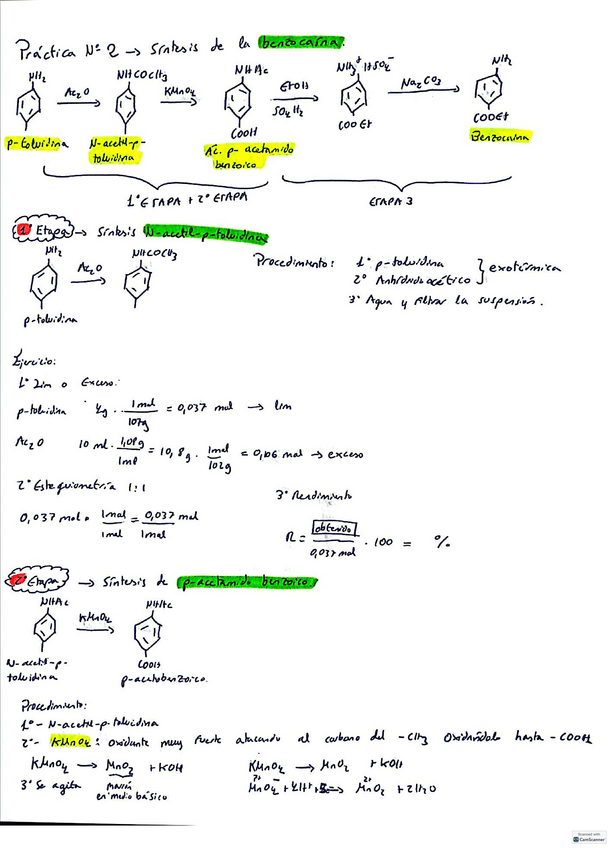 Práctica Nº 2 → Síntesis de la benzocaína.
NH2 NHCOCH3 NHAc NH3+ HSO4- NH2
Ac2O KMnO4 EtOH Na2CO3
SO4H2
COOH COOEt COOEt
p-toluidina N-acetil-p-toluidina Ac. p-acetamido benzoico Benzocaína
1º ETAPA + 2º ETAPA ETAPA 3
1º Etapa → Síntesis N-acetil-p-toluidina
NH2 NHCOCH3
Ac2O
p-toluidina
Procedimiento: 1º p-toluidina
2º Anhídrido acético } exotérmica
3º Agua y filtrar la suspensión.
Ejercicio:
1º Lim o Exceso:
p-toluidina 4g · 1mol/107g = 0,037 mol → lim
Ac2O 10 ml · 1,08g/1ml = 10,8g · 1mol/102g = 0,106 mol → exceso
2º Estequiometría 1:1
0,037 mol · 1mol/1mol = 0,037 mol/1mol
3º Rendimiento
R = obtenido/0,037 mol · 100 = %
2º Etapa → Síntesis de p-acetamido benzoico
NHAc NHAc
KMnO4
COOH
N-acetil-p-toluidina p-acetobenzoico.
Procedimiento:
1º- N-acetil-p-toluidina
2º- KMnO4: oxidante muy fuerte atacando al carbono del -CH3 oxidándolo hasta -COOH
KMnO4 → MnO2 + KOH KMnO4 → MnO2 + KOH
3º Se agita marrón
en medio básico